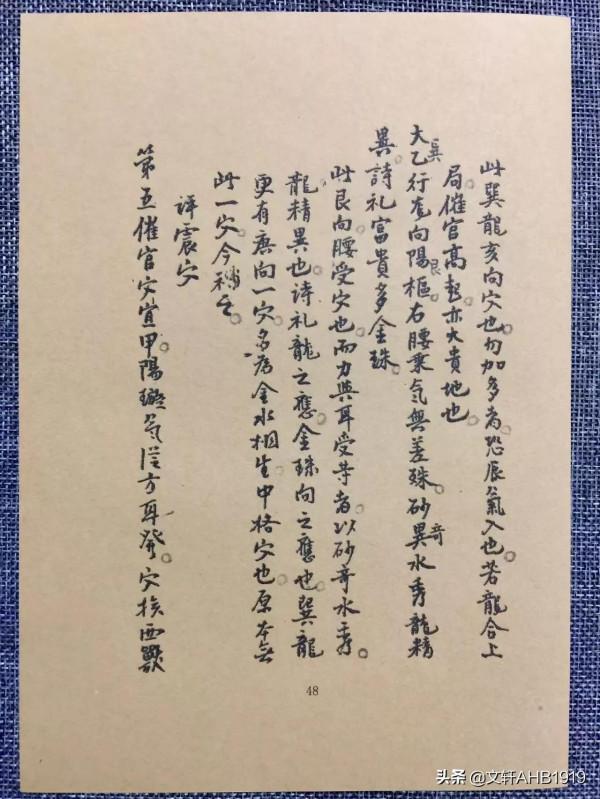 此巽龍亥向穴也勿加多者恐辰氣入也若龍合上
局催官高塾亦大貴地也
太乙巽行龍向陽樞艮右腰乘氣無差殊砂異奇水秀龍精
異詩礼富貴多金珠
此艮向腰受穴也而力與耳受等者以砂奇水秀
龍精異也詩礼龍之應金珠向之應也巽龍
更有庚向一穴名為金水相生中格穴也原本無
此一穴今補之
評震穴
第五催官穴宜甲陽璇氣從右耳發穴挨西獸
48
头条 @文轩AHB1919